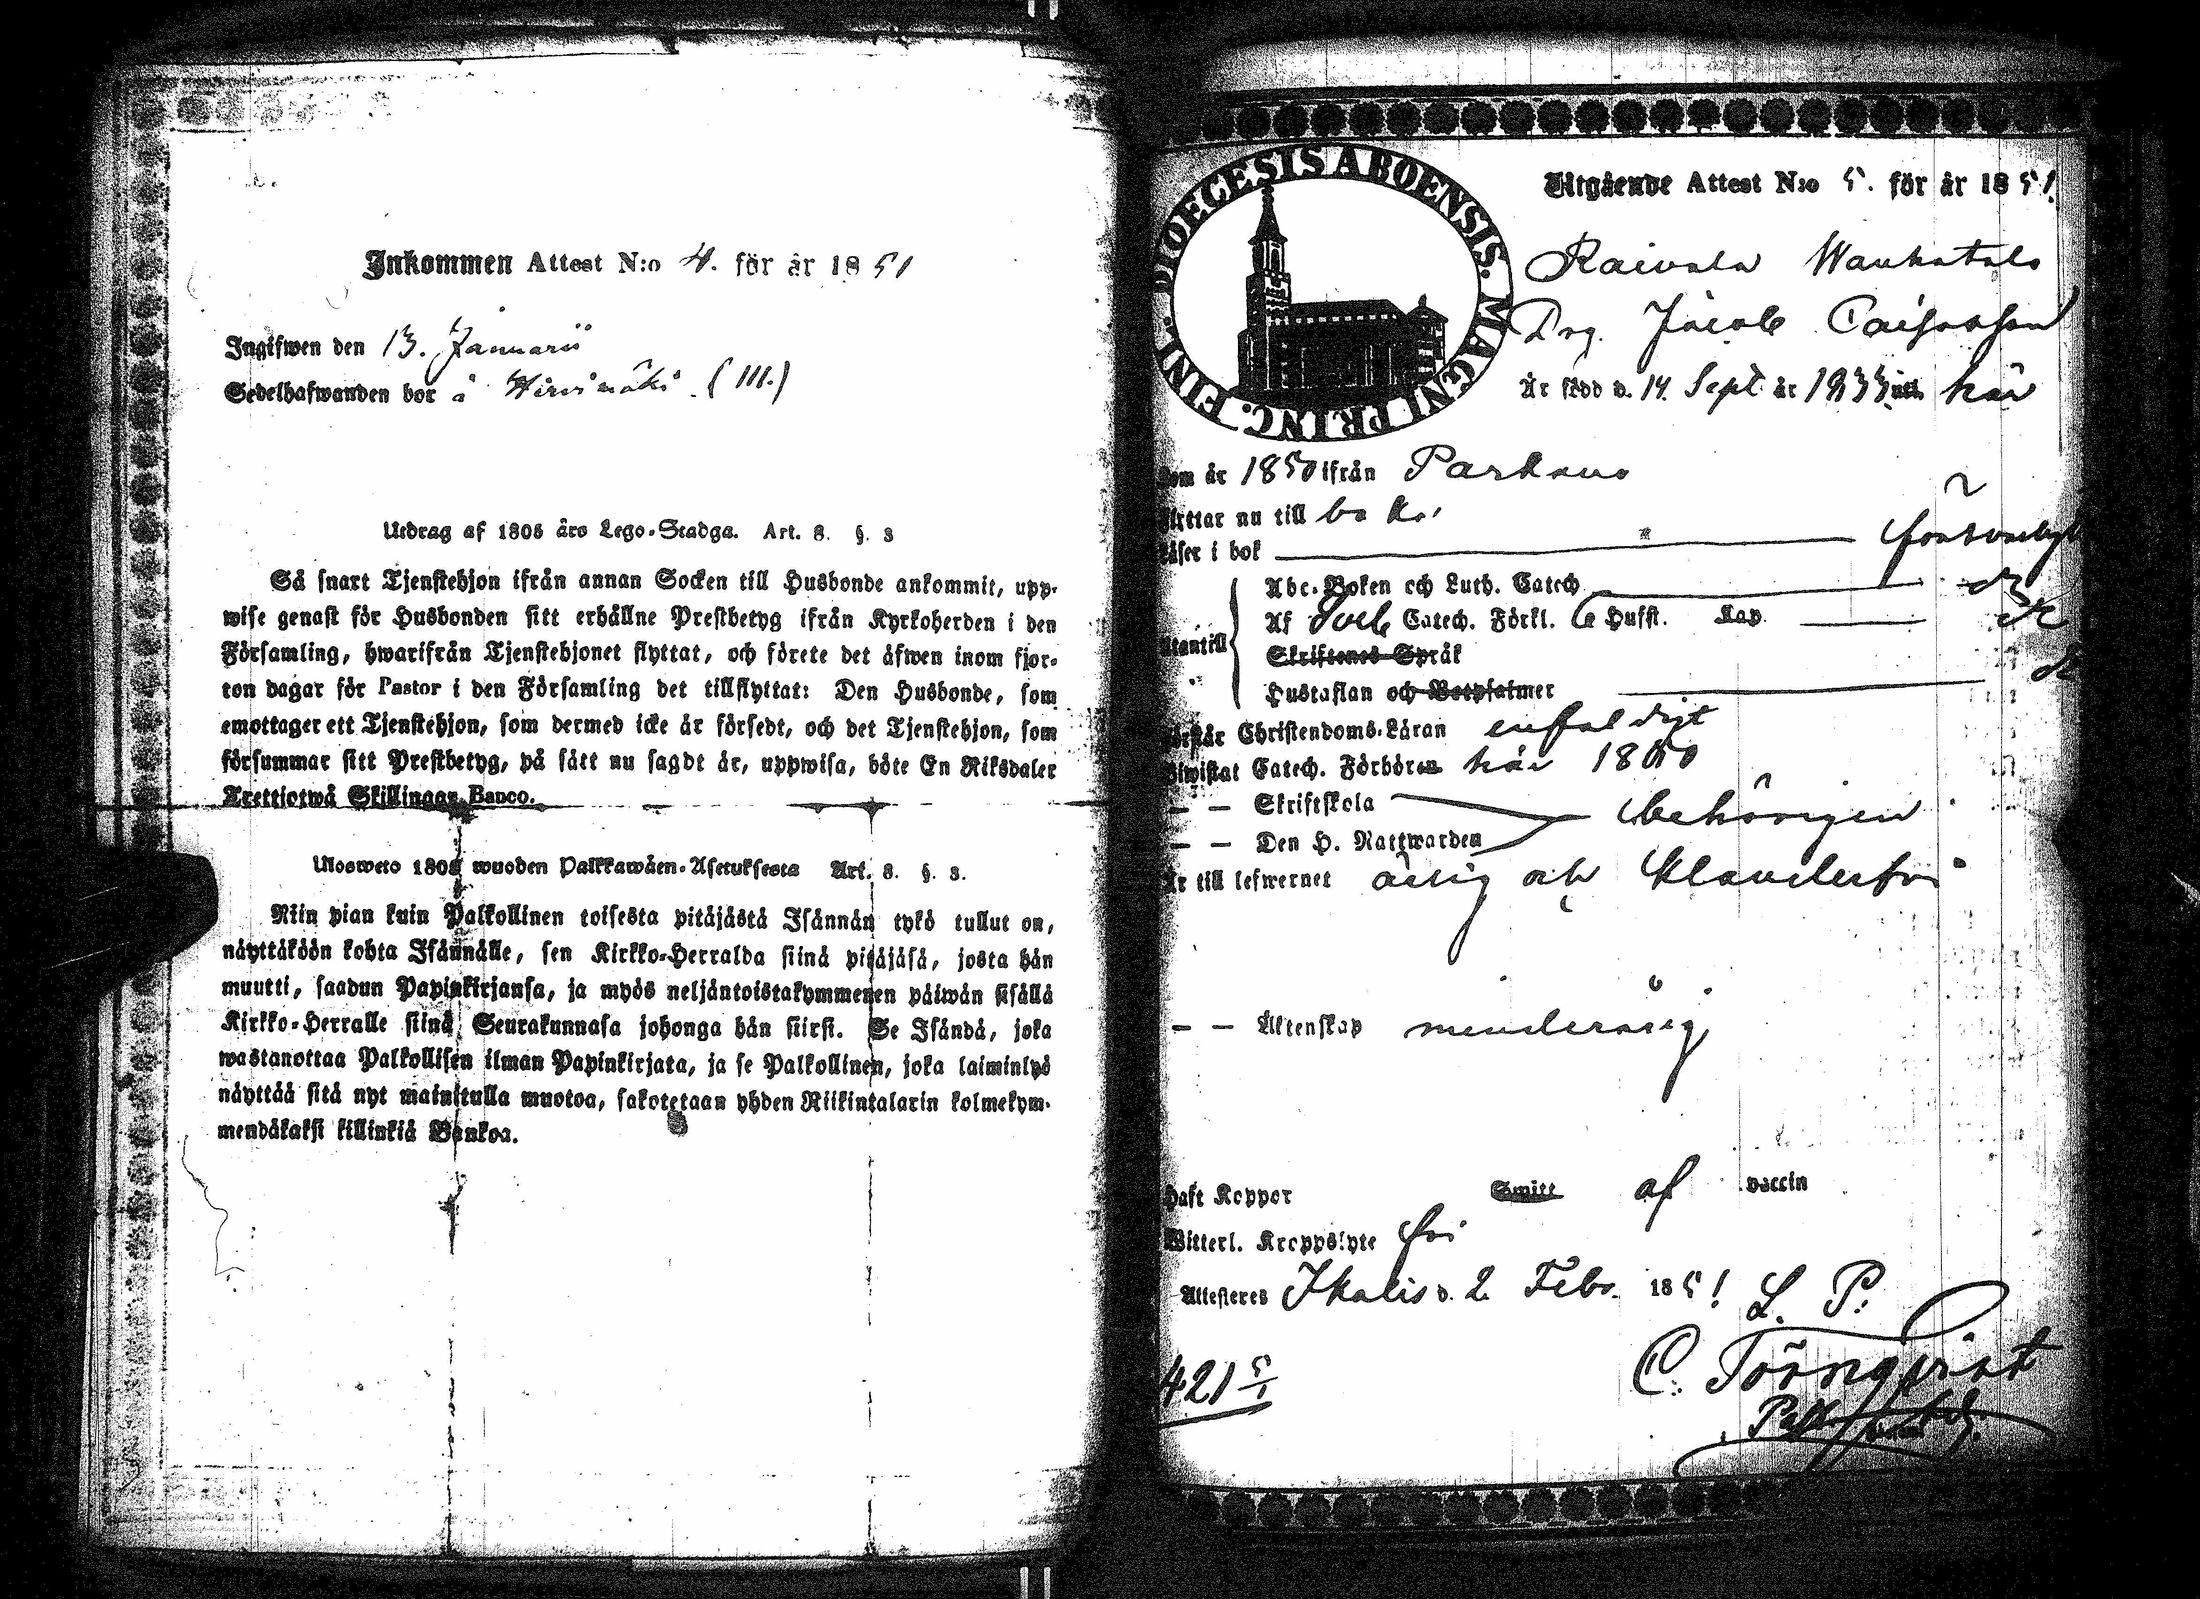 Inkommen Attest N:o 4. för år 1851
Ingifwen den 13. Januarii
Sedelhafwanden bor å Hirvimäki (III.)
Utdrag af 1805 års Lego-Stadga. Art. 8. §. 3
Så snart Tjenstehjon ifrån annan Socken till Husbonde ankommit, upp-
wise genast för Husbonden sitt erhållne Prestbetyg ifrån Kyrkoherden i den
Församling, hwarifrån Tjenstehjonet flyttat, och förete det äfwen inom fjor-
ton dagar för Pastor i den Församling det tillflyttat: Den Husbonde, som
emottager ett Tjenstehjon, som dermed icke är försedt, och det Tjenstehjon, som
försummar sitt Prestbetyg, på sätt nu sagdt är, uppwisa, böte En Riksdaler
Trettiotwå Skillingar Banco.
Ulosweto 1805 wuoden Palkkawäen-Asetuksesta Art. 8. §. 3.
Niin pian kuin Palkollinen toisesta pitäjästä Isännän tykö tullut on,
näyttäköön kohta Isännälle, sen Kirkko-Herralda siinä pitäjäsä, josta hän
muutti, saadun Papinkirjansa, ja myös neljäntoistakymmenen päiwän sisällä
Kirkko-Herralle siinä Seurakunnasa johonga hän siirsi. Se Isändä, joka
wastanottaa Palkollisen ilman Papinkirjata, ja se Palkollinen, joka laiminlyö
näyttää sitä nyt mainitulla muotoa, sakotetaan yhden Riikintalarin kolmekym-
mendäkaksi killinkiä Bankoa.
DIOECESIS ABOENSIS. MAGNI PRINC. FINL.
Utgående Attest N:o 5. för år 1851.
Raivala Wanhatalo
Drg. Jacob
Är född d. 14 Sept år 1833 här
kom år 1850 ifrån Parkano
flyttar nu till
Läser i bok försvarligt
Abc-Boken och Luth. Catech
Af Sveb Catech. Förkl. 6 Hufst. Kap.
Utantill
Skriftenes Språk
Hustaflan och Botpsalmer
Förstår Christendoms-Läran enfaldigt
Biwistat Catech. Förhören här 1850
— — Skriftskola
behörigen
— — Den H. Nattwarden
Är till lefwernet ärlig och klanderfri
— — Äktenskap minderårig
Haft Koppor Smitt af vaccin
Witterl. Kroppslyte fri
Attesteres Ikalis d. 2 Febr. 1851
L. P.
C. Törnqvist
421 5/1